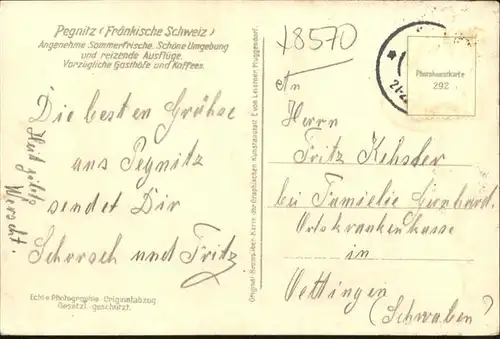 Pegnitz (Fränkische Schweiz)
Angenehme Sommerfrische. Schöne Umgebung
und reizende Ausflüge.
Vorzügliche Gasthöfe und Kaffees.
Die besten Grüße
aus Pegnitz
sendet Dir
Schorsch und Fritz
Echte Photographie-Originalabzug
Gesetzl. geschützt.
Original-Bromsilber-Karte der Graphischen Kunstanstalt E. von Leistner, Muggendorf.
8570
Photokunstkarte
292
An
Herrn
Fritz Kehster
bei Familie
Ortskrankenkasse
in
Oettingen
(Schwaben)